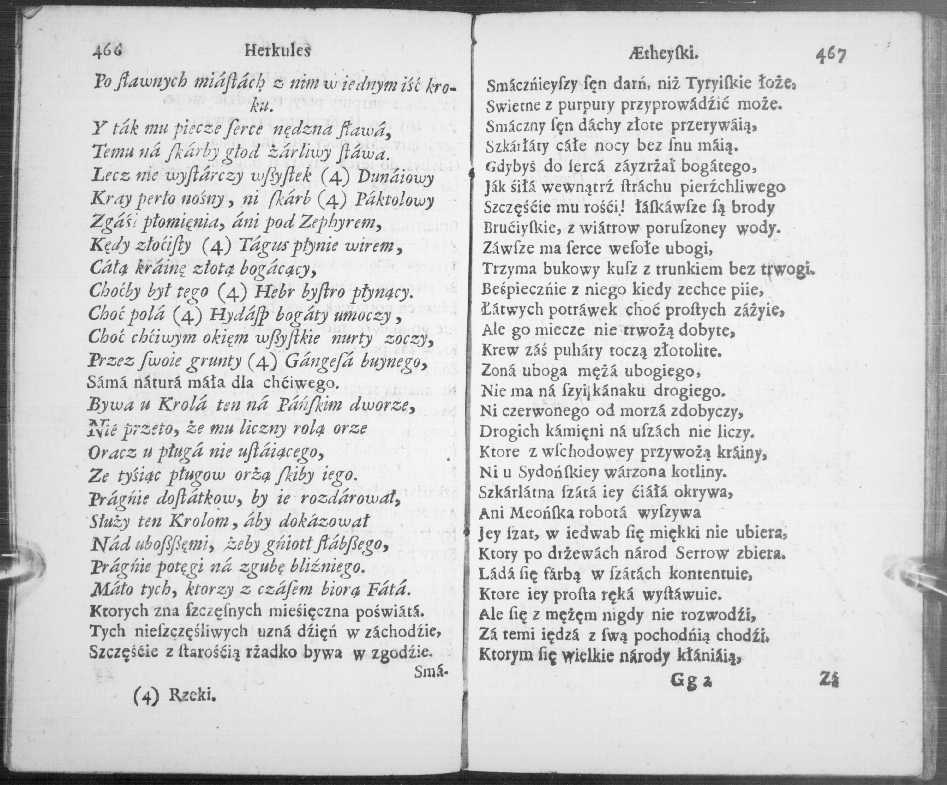 466 Herkules
Po ſławnych miáſtách z nim w iednym iść kro-
ku.
Y ták mu piecze ſerce nędzna ſława,
Temu ná ſkárby głod żárliwy ſtáwa.
Lecz nie wyſtárczy wſßyſtek (4) Dunáiowy
Kray perło nośny, ni ſkárb (4) Páktolowy
Zgáśi płomięnia, áni pod Zephyrem,
Kędy złoćiſty (4) Tágus płynie wirem,
Cáłą kráinę złotą bogácący,
Choćby był tego (4) Hebr byſtro płynący.
Choć polá (4) Hydáſp bogáty umoczy,
Choć chćiwym okięm wſßyſtkie nurty zoczy,
Przez ſwoie grunty (4) Gángeſá buynego,
Sámá náturá máła dla chćiwego.
Bywa u Krolá ten ná Páńſkim dworze,
Nie przeto, że mu liczny rolą orze
Oracz u pługá nie uſtáiącego,
Ze tyśiąc pługow orżą ſkiby iego.
Prágńie doſtátkow, by ie rozdárował,
Służy ten Krolom, áby dokázował
Nád uboſßßęmi, żeby gńiotł ſłábßego,
Prágńie potęgi ná zgubę bliźniego.
Máło tych, ktorzy z czáſem biorą Fátá.
Ktorych zna ſzczęſnych mieśięczna poświátá.
Tych nieſzczęśliwych uzná dźięń w záchodźie,
Szczęśćie z ſtarośćią rżadko bywa w zgodźie.
Smá-
(4) Rzeki.
Ætheyſki. 467
Smáczńieyſzy ſęn darń, niż Tyryiſkie łoże,
Swietne z purpury przyprowádźić może.
Smáczny ſęn dáchy złote przerywáią,
Szkárłáty cáłe nocy bez ſnu máią.
Gdybyś do ſercá záyzrżał bogátego,
Ják śiłá wewnątrź ſtráchu pierźchliwego
Szczęśćie mu rośći! łáſkáwſze ſą brody
Brućiyſkie, z wiátrow poruſzoney wody.
Záwſze ma ſerce weſołe ubogi,
Trzyma bukowy kuſz z trunkiem bez trwogi.
Beśpiecźnie z niego kiedy zechce piie,
Łátwych potráwek choć proſtych záżyie,
Ale go miecze nie trwożą dobyte,
Krew záś puháry toczą złotolite.
Zoná uboga mężá ubogiego,
Nie ma ná ſzyi kánaku drogiego.
Ni czerwonego od morzá zdobyczy,
Drogich kámięni ná uſzách nie liczy.
Ktore z wſchodowey przywożą kráiny,
Ni u Sydońſkiey wárzona kotliny.
Szkárlátna ſzátá iey ćiáłá okrywa,
Ani Meońſka robotá wyſzywa
Jey ſzat, w iedwab ſię miękki nie ubiera,
Ktory po drżewách národ Serrow zbiera.
Ládá ſię fárbą w ſzátách kontentuie,
Ktore iey proſta ręká wyſtáwuie.
Ale ſię z mężęm nigdy nie rozwodźi,
Zá temi iędzá z ſwą pochodńią chodźi.
Ktorym ſię wielkie národy kłániáią,
Gg 2 Zá